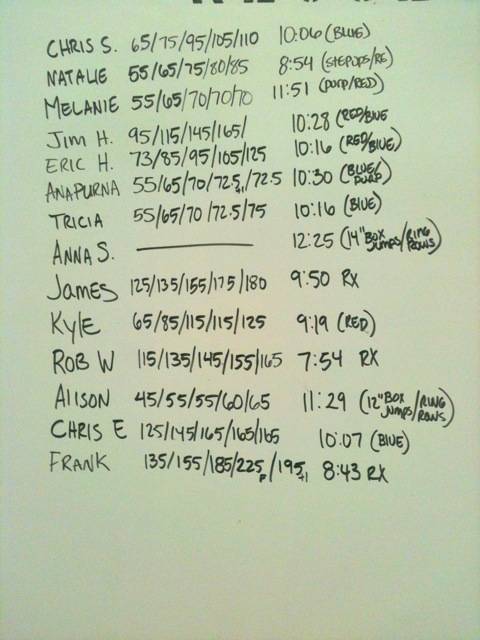 CHRIS S. 65/75/95/105/110 10:06 (BLUE)
NATALIE 55/65/75/80/85 8:54 (STEPUPS/RE)
MELANIE 55/65/70/70/70 11:51 (PURP/RED)
Jim H. 95/115/145/165/ 10:28 (RED/BLUE
ERIC H. 73/85/95/105/125 10:16 (RED/BLUE)
ANAPURNA 55/65/70/72.5+1/72.5 10:30 (BLUE/PURP)
TRICIA 55/65/70/72.5/75 10:16 (BLUE)
ANNA S. 12:25 (14" BOX JUMPS/RING ROWS)
JAMES 125/135/155/175/180 9:50 RX
KYLE 65/85/115/115/125 9:19 (RED)
ROB W 115/135/145/155/165 7:54 RX
AllSON 45/55/55/60/65 11:29 (12" BOX JUMPS/RING ROWS)
CHRIS E 125/145/165/165/165 10:07 (BLUE)
FRANK 135/155/185/225F/195+1 8:43 RX